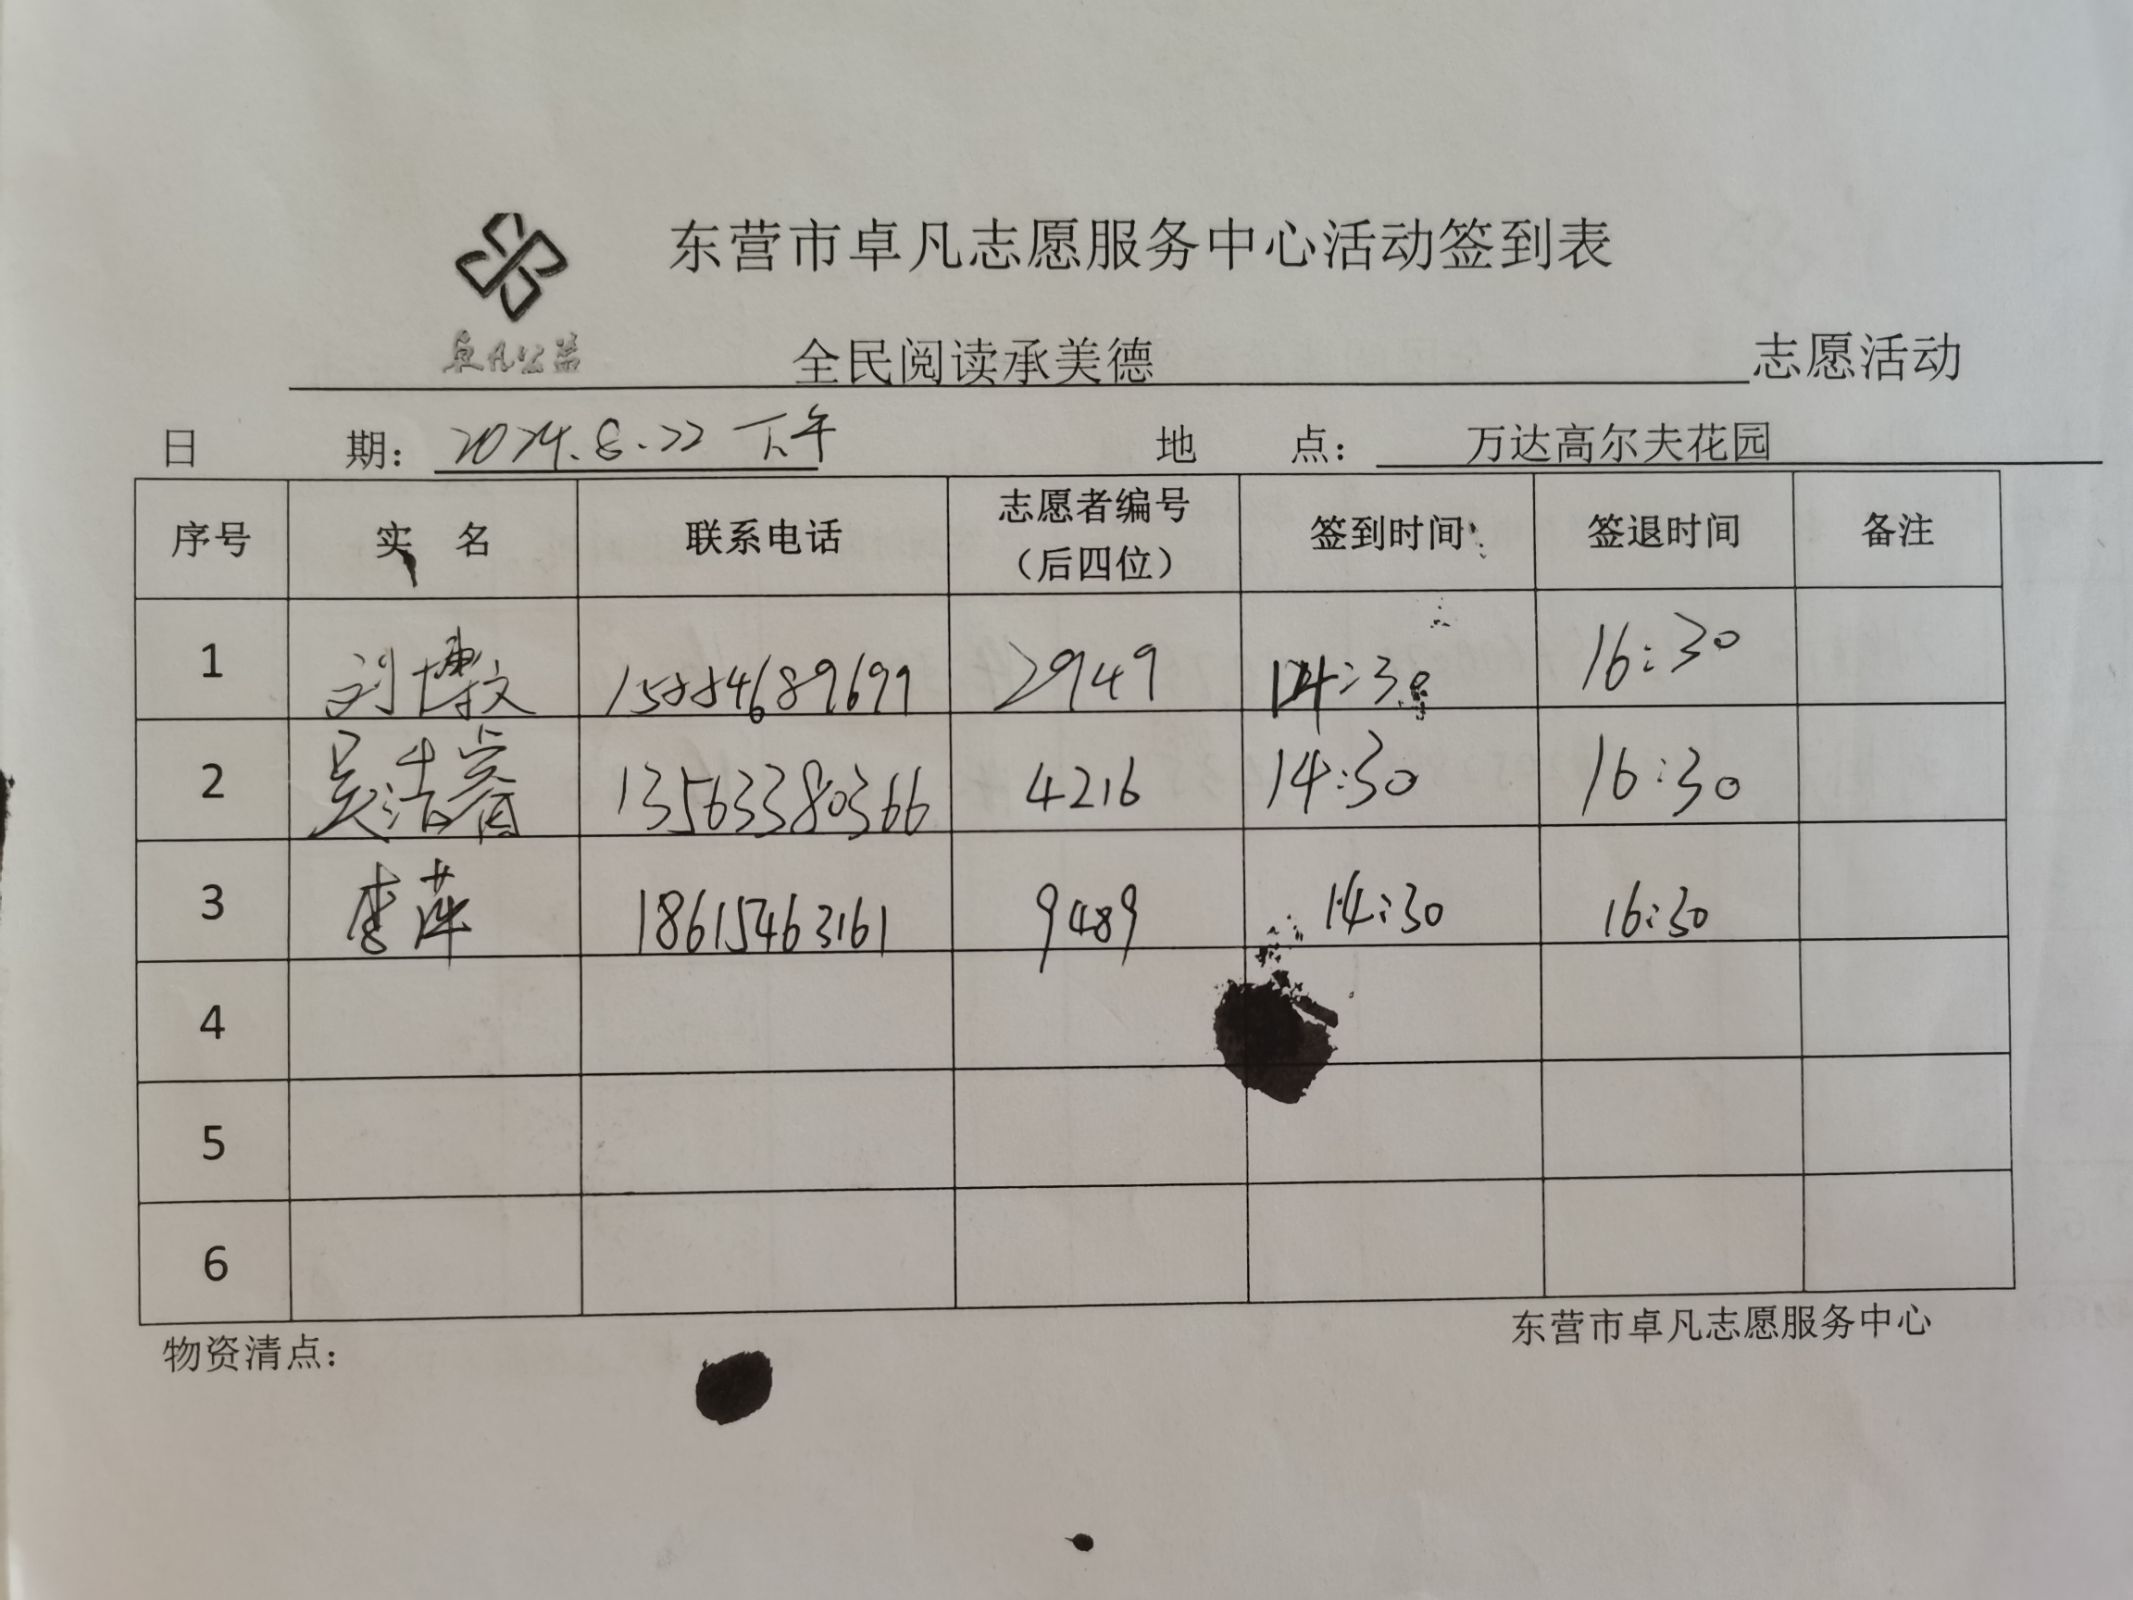 东营市卓凡志愿服务中心活动签到表
卓凡公益
全民阅读承美德 志愿活动
日 期: 2024.8.22 下午 地 点: 万达高尔夫花园
序号 实 名 联系电话 志愿者编号（后四位） 签到时间 签退时间 备注
1 刘博文 15884689699 2949 14:30 16:30
2 吴浩睿 13563380366 4216 14:30 16:30
3 李萍 18615463161 9489 14:30 16:30
4
5
6
物资清点: 东营市卓凡志愿服务中心